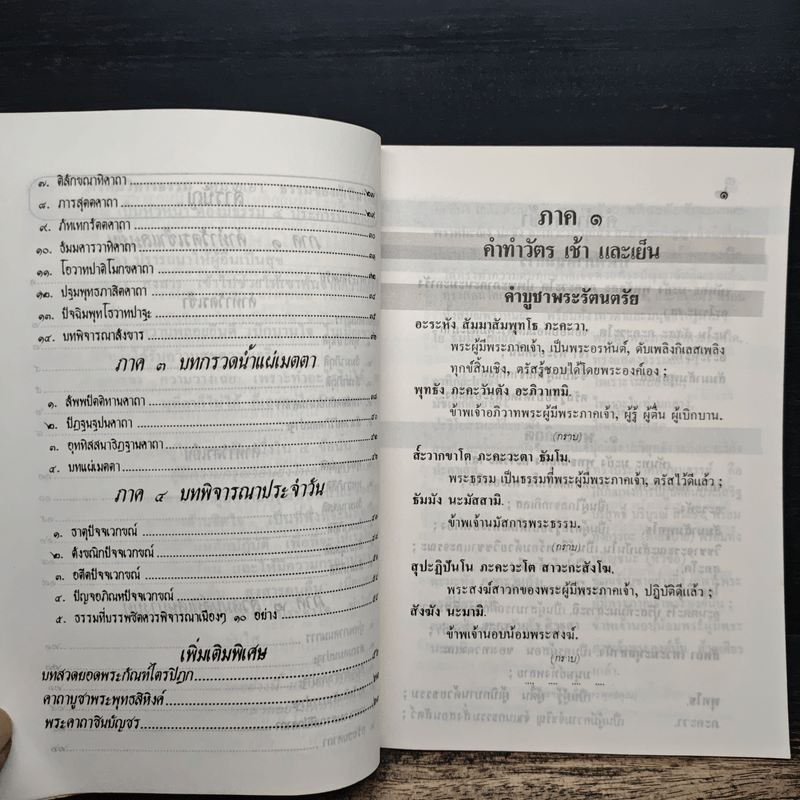 ๗. ติลักขณาทิคาถา ๒๗
๘. ภารสุตตคาถา ๒๙
๙. ภัทเทกรัตตคาถา ๓๐
๑๐. ธัมมคารวาทิคาถา
๑๑. โอวาทปาติโมกขคาถา
๑๒. ปฐมพุทธภาสิตคาถา
๑๓. ปัจฉิมพุทโธวาทปาฐะ
๑๔. บทพิจารณาสังขาร
ภาค ๓ บทกรวดน้ำแผ่เมตตา
๑. สัพพปัตติทานคาถา
๒. ปัฏฐนฐปนคาถา
๓. อุททิสสนาธิฏฐานคาถา
๔. บทแผ่เมตตา
ภาค ๔ บทพิจารณาประจำวัน
๑. ธาตุปัจจเวกขณ์
๒. ตังขณิกปัจจเวกขณ์
๓. อตีตปัจจเวกขณ์
๔. ปัญจอภิณหปัจจเวกขณ์
๕. ธรรมที่บรรพชิตควรพิจารณาเนืองๆ ๑๐ อย่าง
เพิ่มเติมพิเศษ
บทสวดยอดพระกัณฑ์ไตรปิฎก
คาถาบูชาพระพุทธสิหิงค์
พระคาถาชินบัญชร
๑
ภาค ๑
คำทำวัตร เช้า และเย็น
คำบูชาพระรัตนตรัย
อะระหัง สัมมาสัมพุทโธ ภะคะวา,
พระผู้มีพระภาคเจ้า, เป็นพระอรหันต์, ดับเพลิงกิเลสเพลิง
ทุกข์สิ้นเชิง, ตรัสรู้ชอบได้โดยพระองค์เอง ;
พุทธัง ภะคะวันตัง อะภิวาเทมิ.
ข้าพเจ้าอภิวาทพระผู้มีพระภาคเจ้า, ผู้รู้ ผู้ตื่น ผู้เบิกบาน.
(กราบ)
ส๎วากขาโต ภะคะวะตา ธัมโม,
พระธรรม เป็นธรรมที่พระผู้มีพระภาคเจ้า, ตรัสไว้ดีแล้ว ;
ธัมมัง นะมัสสามิ.
ข้าพเจ้านมัสการพระธรรม.
(กราบ)
สุปะฏิปันโน ภะคะวะโต สาวะกะสังโฆ,
พระสงฆ์สาวกของพระผู้มีพระภาคเจ้า, ปฏิบัติดีแล้ว ;
สังฆัง นะมามิ.
ข้าพเจ้านอบน้อมพระสงฆ์.
(กราบ)